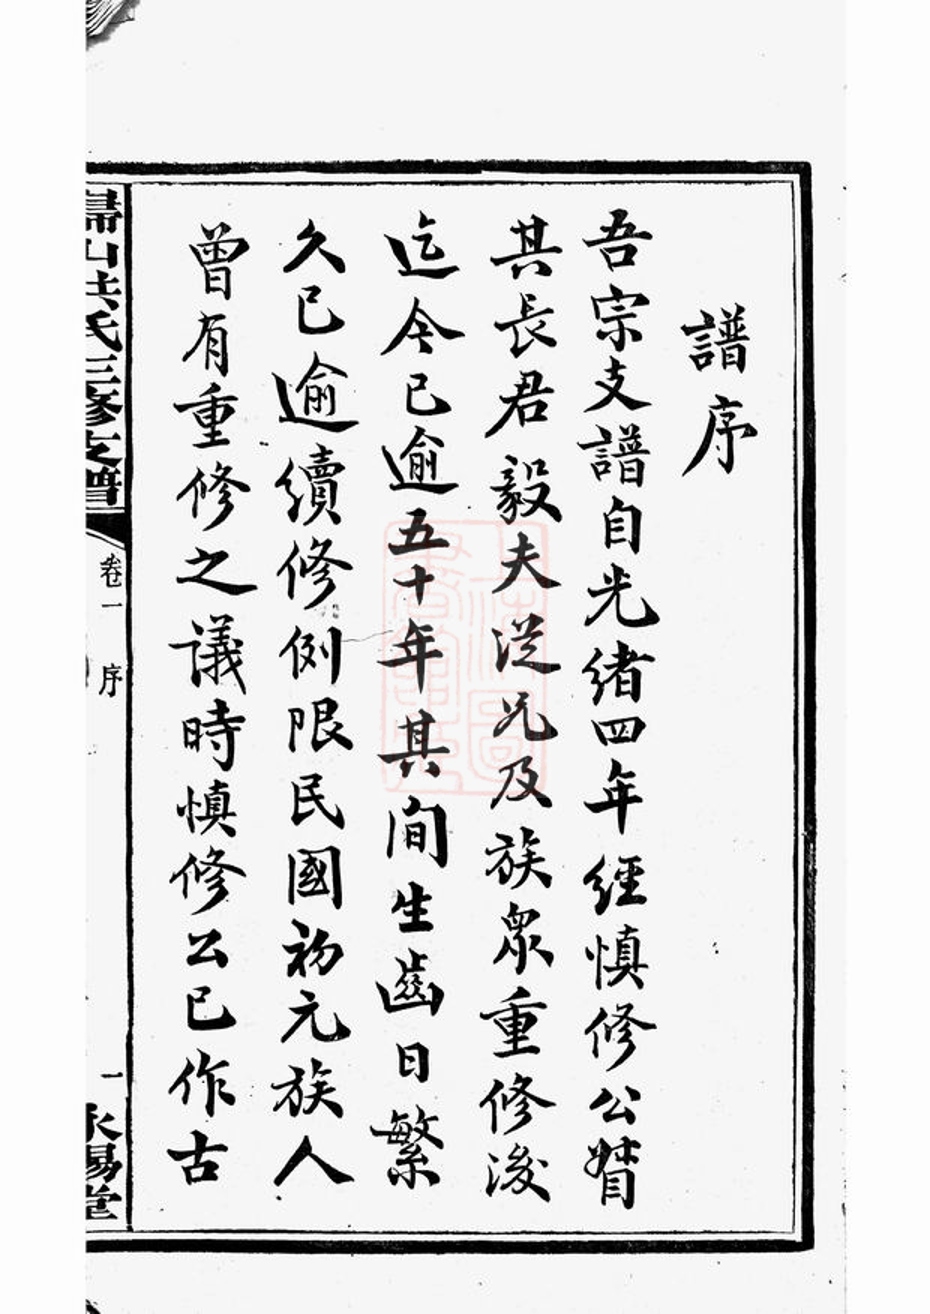 譜序
吾宗支譜自光緒四年經慎修公督
其長君毅夫從兄及族眾重修後
迄今已逾五十年其間生齒日繁
久已逾續修例限民國初元族人
曾有重修之議時慎修公已作古
山洪氏三修支譜 卷一 序 一 永錫堂